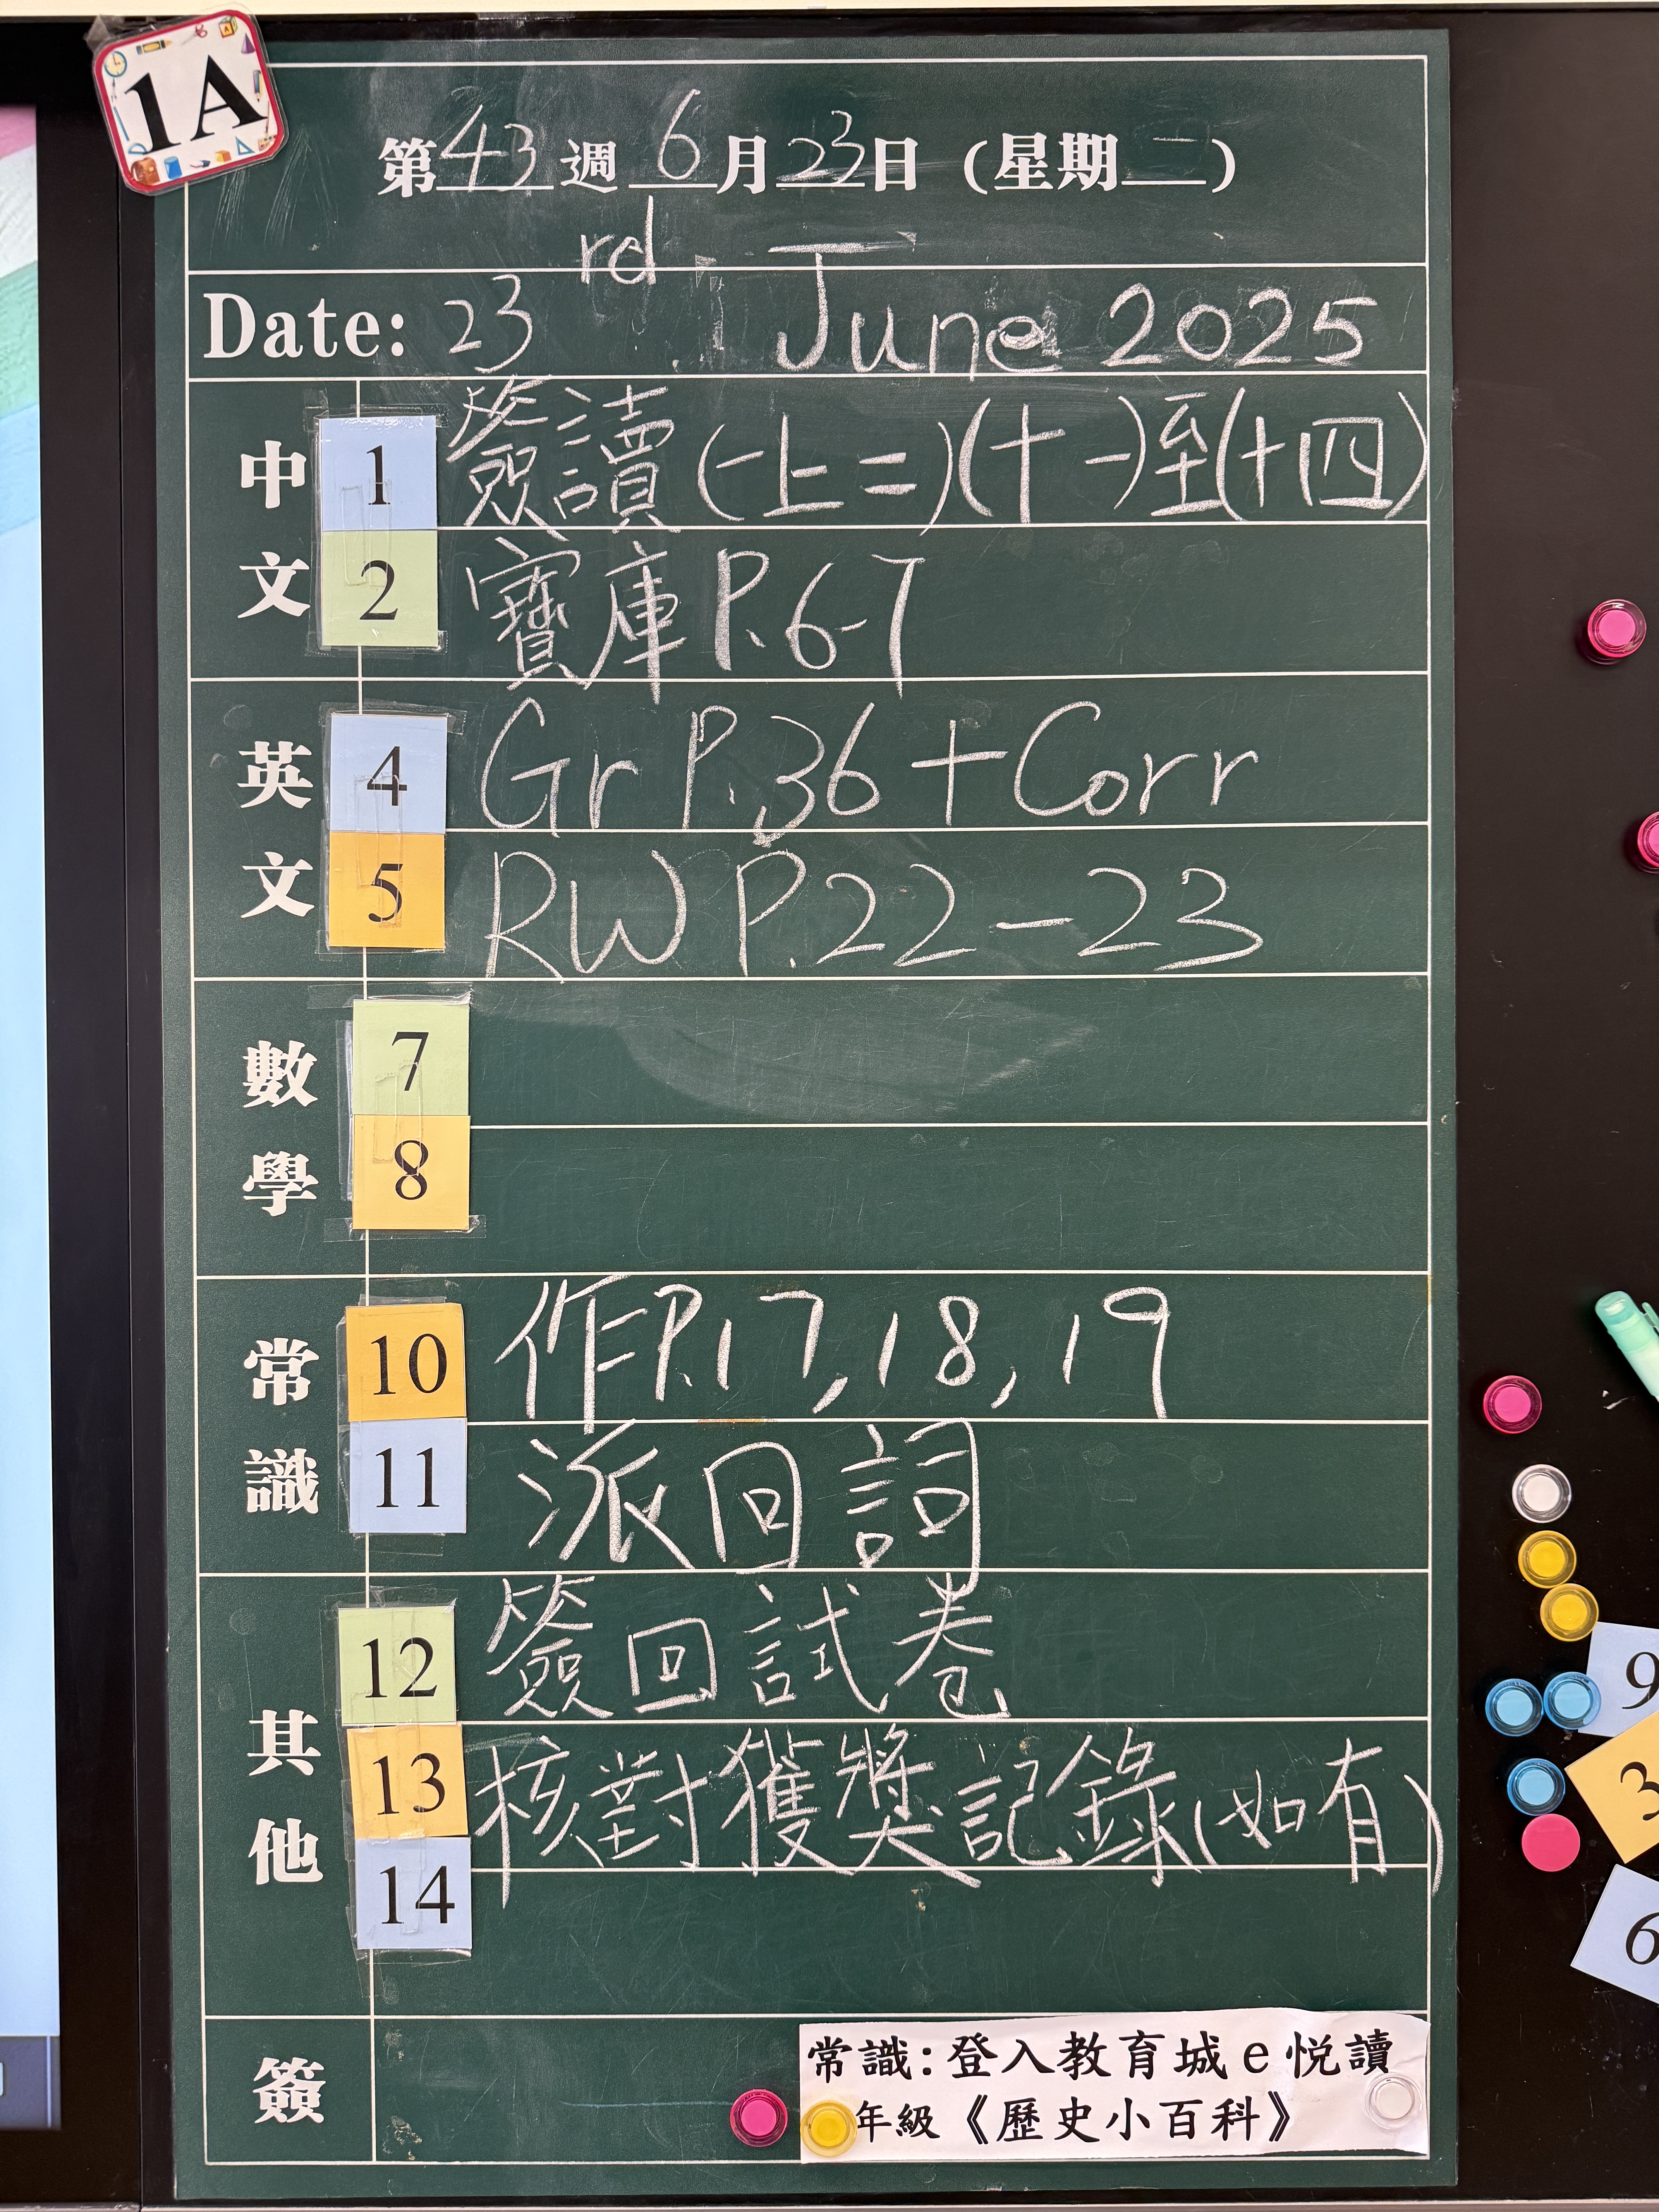 1A
第43週 6月23日 (星期二)
Date: 23rd June 2025
中文
1 簽讀(一上二)(十一)至(十四)
2 寶庫P.6-7
英文
4 Gr P.36 + Corr
5 RW P.22-23
數學
7
8
常識
10 作P.17,18,19
11 派回詞
其他
12 簽回試卷
13 核對獲獎記錄(如有)
14
簽
常識:登入教育城e悅讀
年級《歷史小百科》
9
3
6